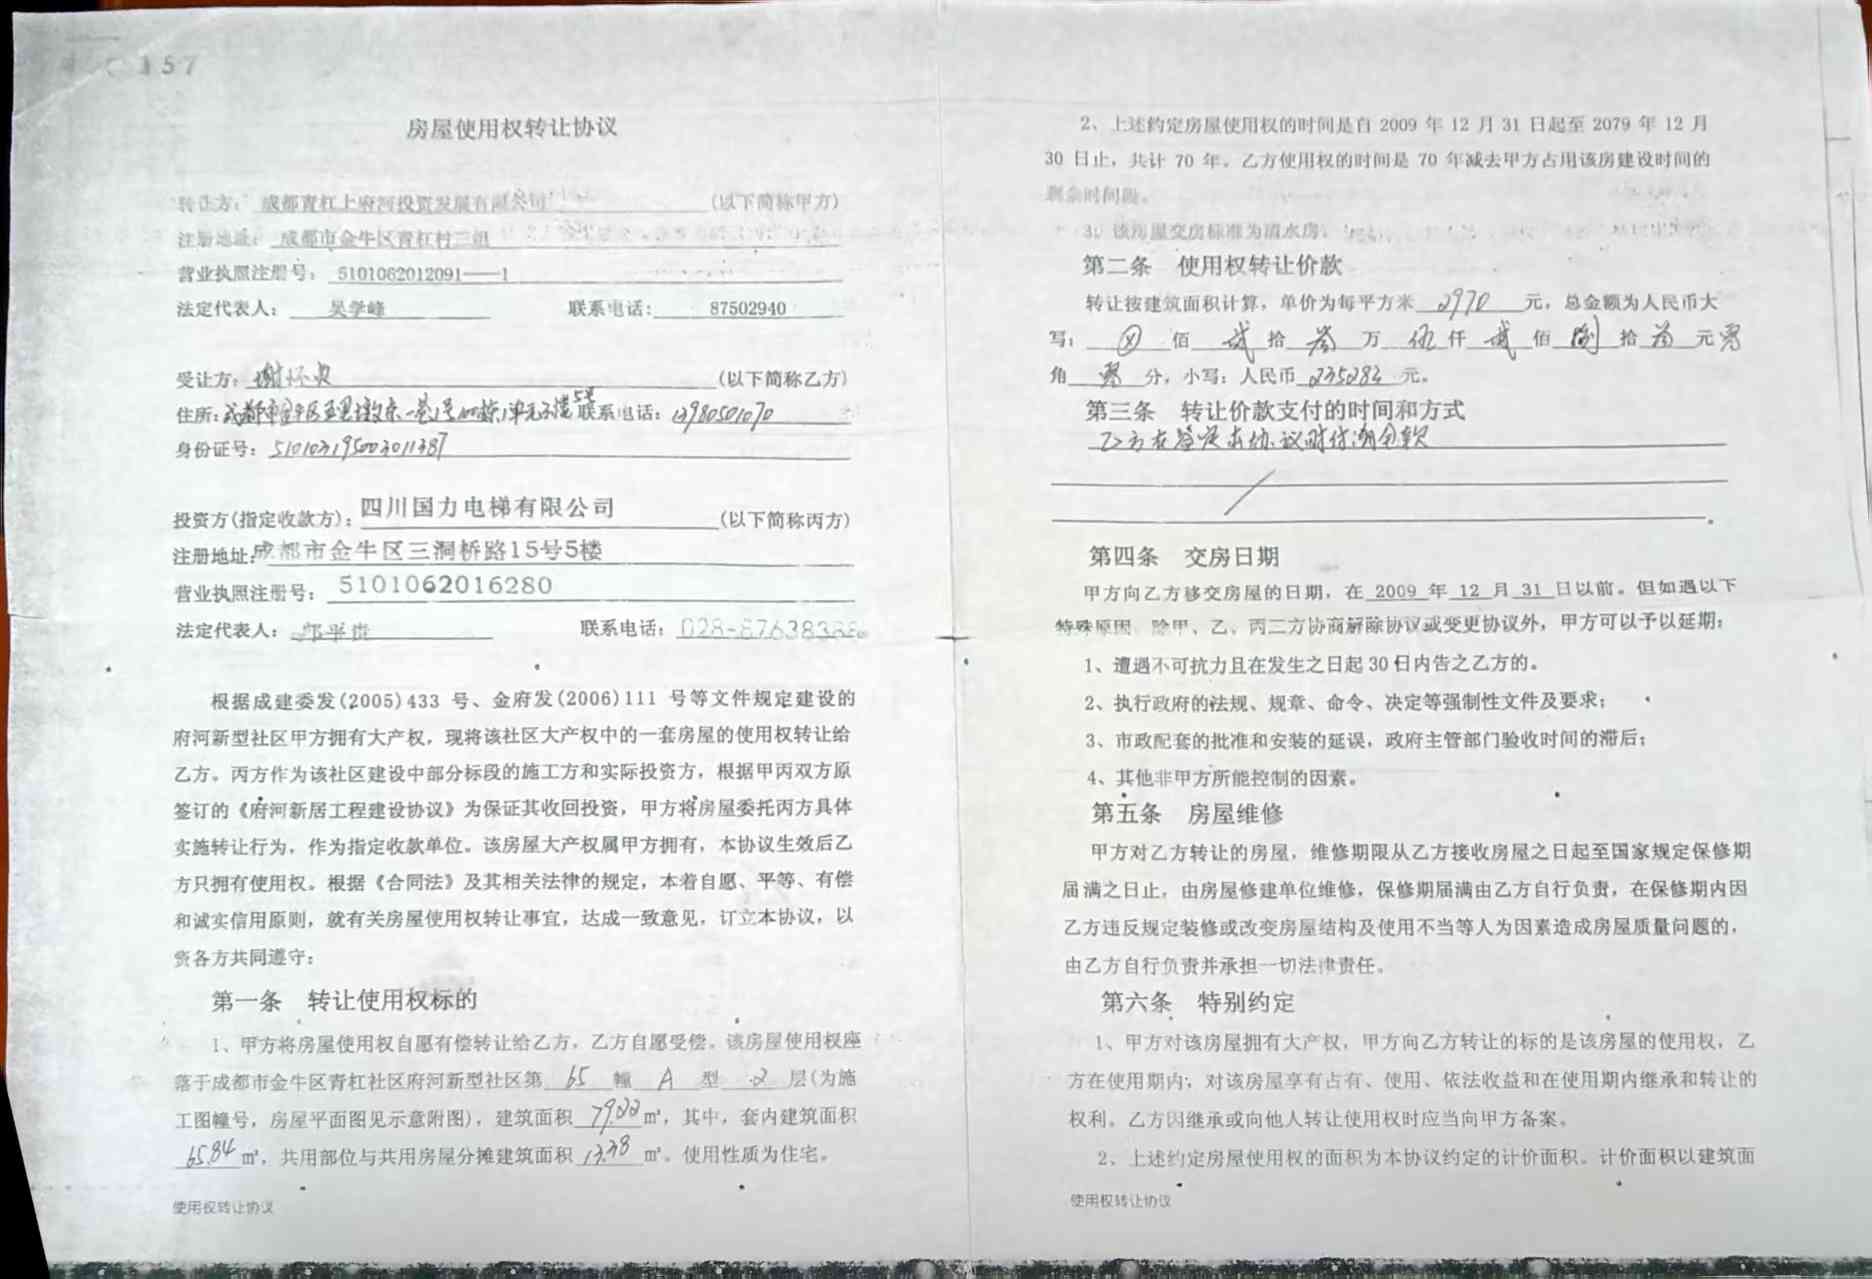 157
房屋使用权转让协议
转让方： 成都青杠上府河投资发展有限公司 (以下简称甲方)
注册地址： 成都市金牛区青杠村三组
营业执照注册号： 5101062012091——1
法定代表人： 吴学峰 联系电话： 87502940
受让方： (以下简称乙方)
住所：成都市金牛区 联系电话：13980501070
身份证号：
投资方(指定收款方)：四川国力电梯有限公司 (以下简称丙方)
注册地址：成都市金牛区三洞桥路15号5楼
营业执照注册号： 5101062016280
法定代表人： 邹平贵 联系电话： 028-87638388
根据成建委发(2005)433 号、金府发(2006)111 号等文件规定建设的
府河新型社区甲方拥有大产权，现将该社区大产权中的一套房屋的使用权转让给
乙方。丙方作为该社区建设中部分标段的施工方和实际投资方，根据甲丙双方原
签订的《府河新居工程建设协议》为保证其收回投资，甲方将房屋委托丙方具体
实施转让行为，作为指定收款单位。该房屋大产权属甲方拥有，本协议生效后乙
方只拥有使用权。根据《合同法》及其相关法律的规定，本着自愿、平等、有偿
和诚实信用原则，就有关房屋使用权转让事宜，达成一致意见，订立本协议，以
资各方共同遵守：
第一条 转让使用权标的
1、甲方将房屋使用权自愿有偿转让给乙方，乙方自愿受偿。该房屋使用权座
落于成都市金牛区青杠社区府河新型社区第 65 幢 A 型 2 层(为施
工图幢号，房屋平面图见示意附图)，建筑面积 79.22 m²，其中，套内建筑面积
65.84 m²，共用部位与共用房屋分摊建筑面积 13.38 m²。使用性质为住宅。
使用权转让协议
2、上述约定房屋使用权的时间是自 2009 年 12 月 31 日起至 2079 年 12 月
30 日止，共计 70 年。乙方使用权的时间是 70 年减去甲方占用该房建设时间的
剩余时间段。
3、该房屋交房标准为清水房。
第二条 使用权转让价款
转让按建筑面积计算，单价为每平方米 2970 元，总金额为人民币大
写： ⊗ 佰 贰 拾 叁 万 伍 仟 贰 佰 捌 拾 叁 元零
角 零 分，小写：人民币 235283 元。
第三条 转让价款支付的时间和方式
乙方在签定本协议时付清全款
第四条 交房日期
甲方向乙方移交房屋的日期，在 2009 年 12 月 31 日以前。但如遇以下
特殊原因，除甲、乙、丙三方协商解除协议或变更协议外，甲方可以予以延期：
1、遭遇不可抗力且在发生之日起 30 日内告之乙方的。
2、执行政府的法规、规章、命令、决定等强制性文件及要求；
3、市政配套的批准和安装的延误，政府主管部门验收时间的滞后；
4、其他非甲方所能控制的因素。
第五条 房屋维修
甲方对乙方转让的房屋，维修期限从乙方接收房屋之日起至国家规定保修期
届满之日止，由房屋修建单位维修，保修期届满由乙方自行负责，在保修期内因
乙方违反规定装修或改变房屋结构及使用不当等人为因素造成房屋质量问题的，
由乙方自行负责并承担一切法律责任。
第六条 特别约定
1、甲方对该房屋拥有大产权，甲方向乙方转让的标的是该房屋的使用权，乙
方在使用期内，对该房屋享有占有、使用、依法收益和在使用期内继承和转让的
权利。乙方因继承或向他人转让使用权时应当向甲方备案。
2、上述约定房屋使用权的面积为本协议约定的计价面积。计价面积以建筑面
使用权转让协议